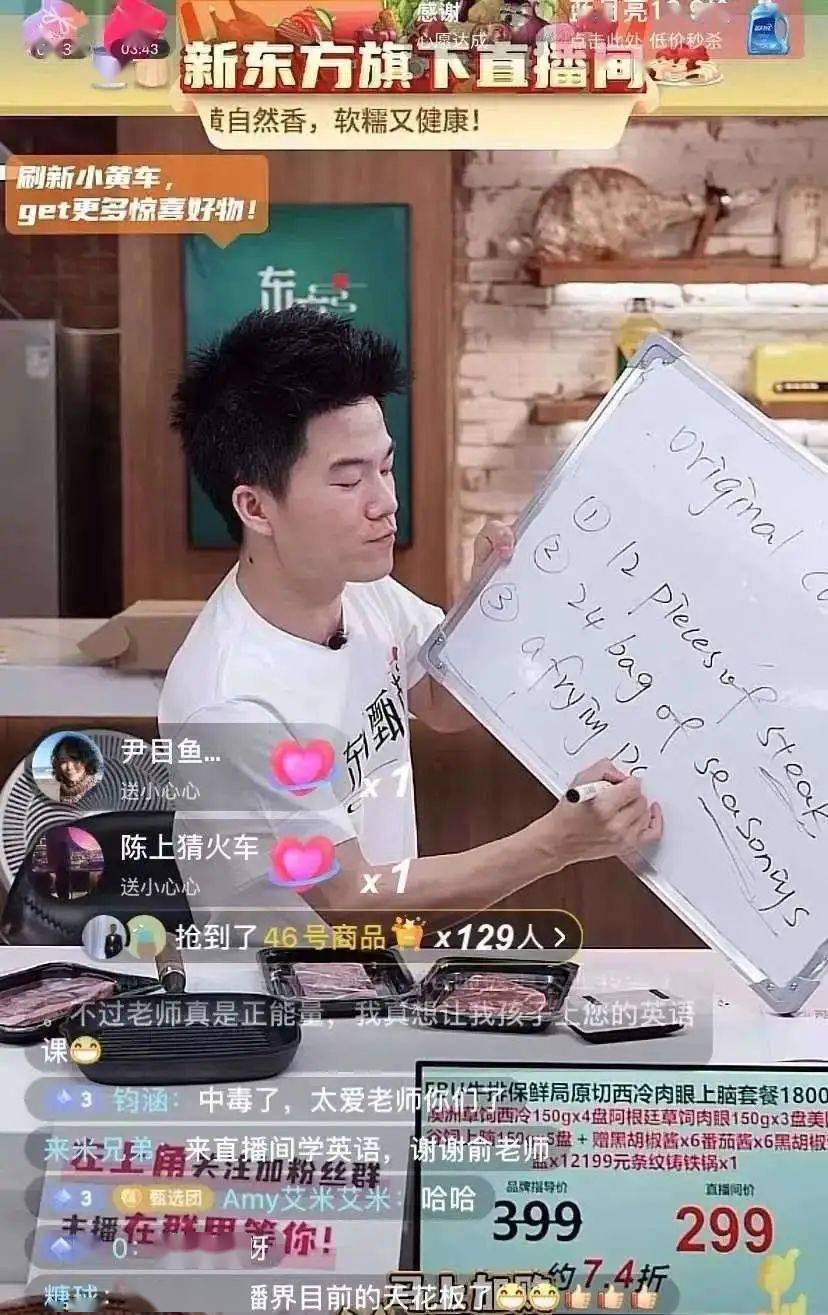 03:43
感谢
心愿达成
点击此处 低价秒杀
新东方旗下直播间
自然香，软糯又健康！
刷新小黄车，
get更多惊喜好物！
东
original
① 12 pieces of steak
② 24 bag of seasonings
③ a frying pa
甄
尹目鱼...
送小心心
x 1
陈上猜火车
送小心心
x 1
抢到了 46号商品 x129人 >
。不过老师真是正能量，我真想让我孩子上您的英语
课😁
3 钧涵：中毒了，太爱老师你们了
来米兄弟：来直播间学英语，谢谢俞老师
3 甄选团 Amy艾米艾米：哈哈
0：
糖球：
番界目前的天花板了😁😁👍👍👍
左上角关注加粉丝群
主播在群里等你！
牛排保鲜局原切西冷肉眼上脑套餐1800
澳洲草饲西冷150gx4盘阿根廷草饲肉眼150gx3盘美
谷饲上脑150gx5盘 + 赠黑胡椒酱x6番茄酱x6黑胡椒
盘x12199元条纹铸铁锅x1
品牌指导价
399
直播间价
299
约7.4折